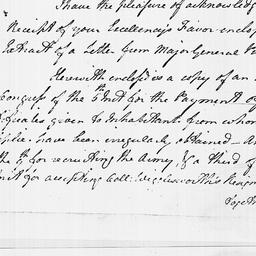 I have the pleasure of acknowledg
Receipt of your Excellency's Favor enclos
Extract of a Letter from Major General
Herewith enclos'd is a copy of an
Congress of the 5th Inst for the Payment of
given to Inhabitants from whom
have been irregularly obtained — an
the for recruiting the Army, & a third of
Inst for accepting Coll: Wigglesworth's Resign